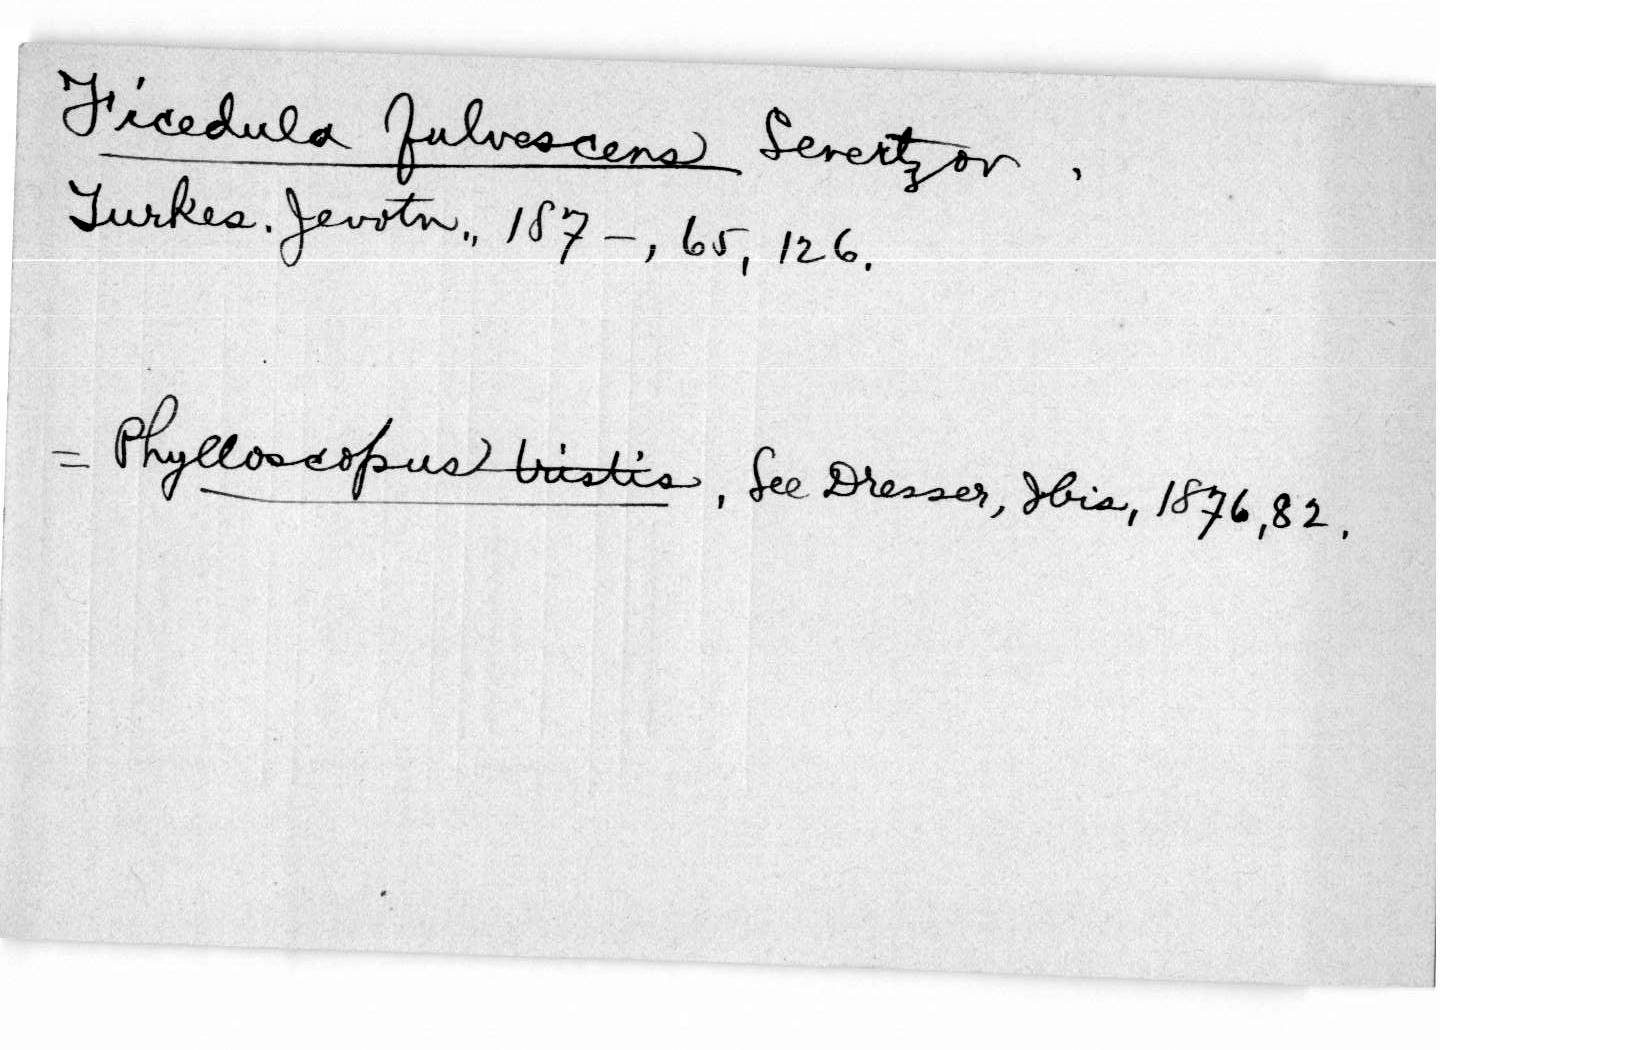 Ficedula fulvescens Severtzov,
Turkes. Jevotn., 187-, 65, 126.
= Phylloscopus tristis, See Dresser, Ibis, 1876, 82.